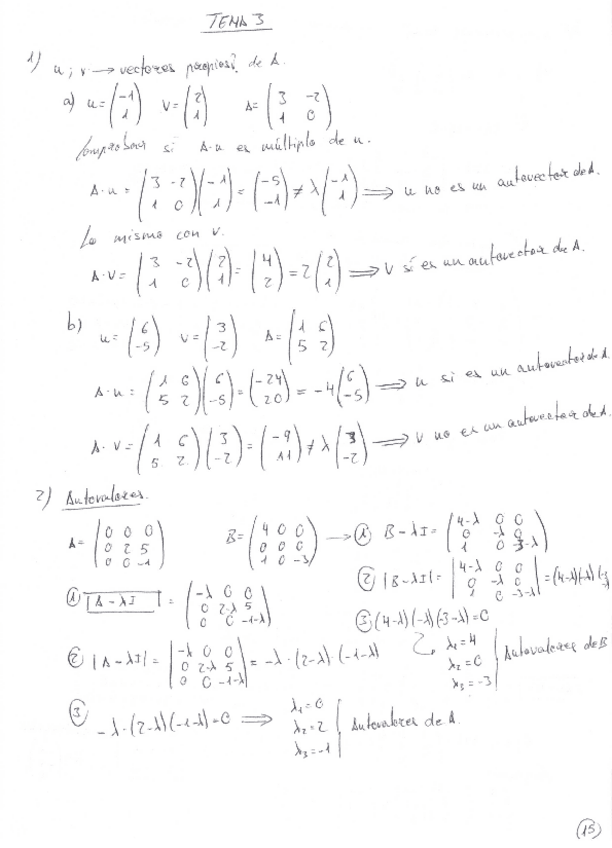 TEMA 3
1) u; v → vectores propios? de A.
a) u = (-1 1) V = (2 1) A = (3 -2 1 0)
Comprobar si A·u es múltiplo de u.
A·u = (3 -2 1 0)(-1 1) = (-5 -1) ≠ λ(-1 1) ⟹ u no es un autovector de A.
Lo mismo con v.
A·V = (3 -2 1 0)(2 1) = (4 2) = 2(2 1) ⟹ V sí es un autovector de A.
b) u = (6 -5) V = (3 -2) A = (1 6 5 2)
A·u = (1 6 5 2)(6 -5) = (-24 20) = -4(6 -5) ⟹ u si es un autovector de A.
A·V = (1 6 5 2)(3 -2) = (-9 11) ≠ λ(3 -2) ⟹ V no es un autovector de A.
2) Autovalores.
A = (0 0 0 0 2 5 0 0 -1) B = (4 0 0 0 0 0 1 0 -3) → ① B - λI = (4-λ 0 0 0 -λ 0 1 0 3-λ)
① |A - λI| = (-λ 0 0 0 2-λ 5 0 0 -1-λ)
② |B - λI| = |4-λ 0 0 0 -λ 0 1 0 -3-λ| = (4-λ)(-λ)(-3-λ)
③ (4-λ)(-λ)(-3-λ) = 0
λ₁ = 4
λ₂ = 0
λ₃ = -3
Autovalores de B
② |A - λI| = |-λ 0 0 0 2-λ 5 0 0 -1-λ| = -λ·(2-λ)·(-1-λ)
③ -λ·(2-λ)(-1-λ) = 0 ⟹
λ₁ = 0
λ₂ = 2
λ₃ = -1
Autovalores de A.
15